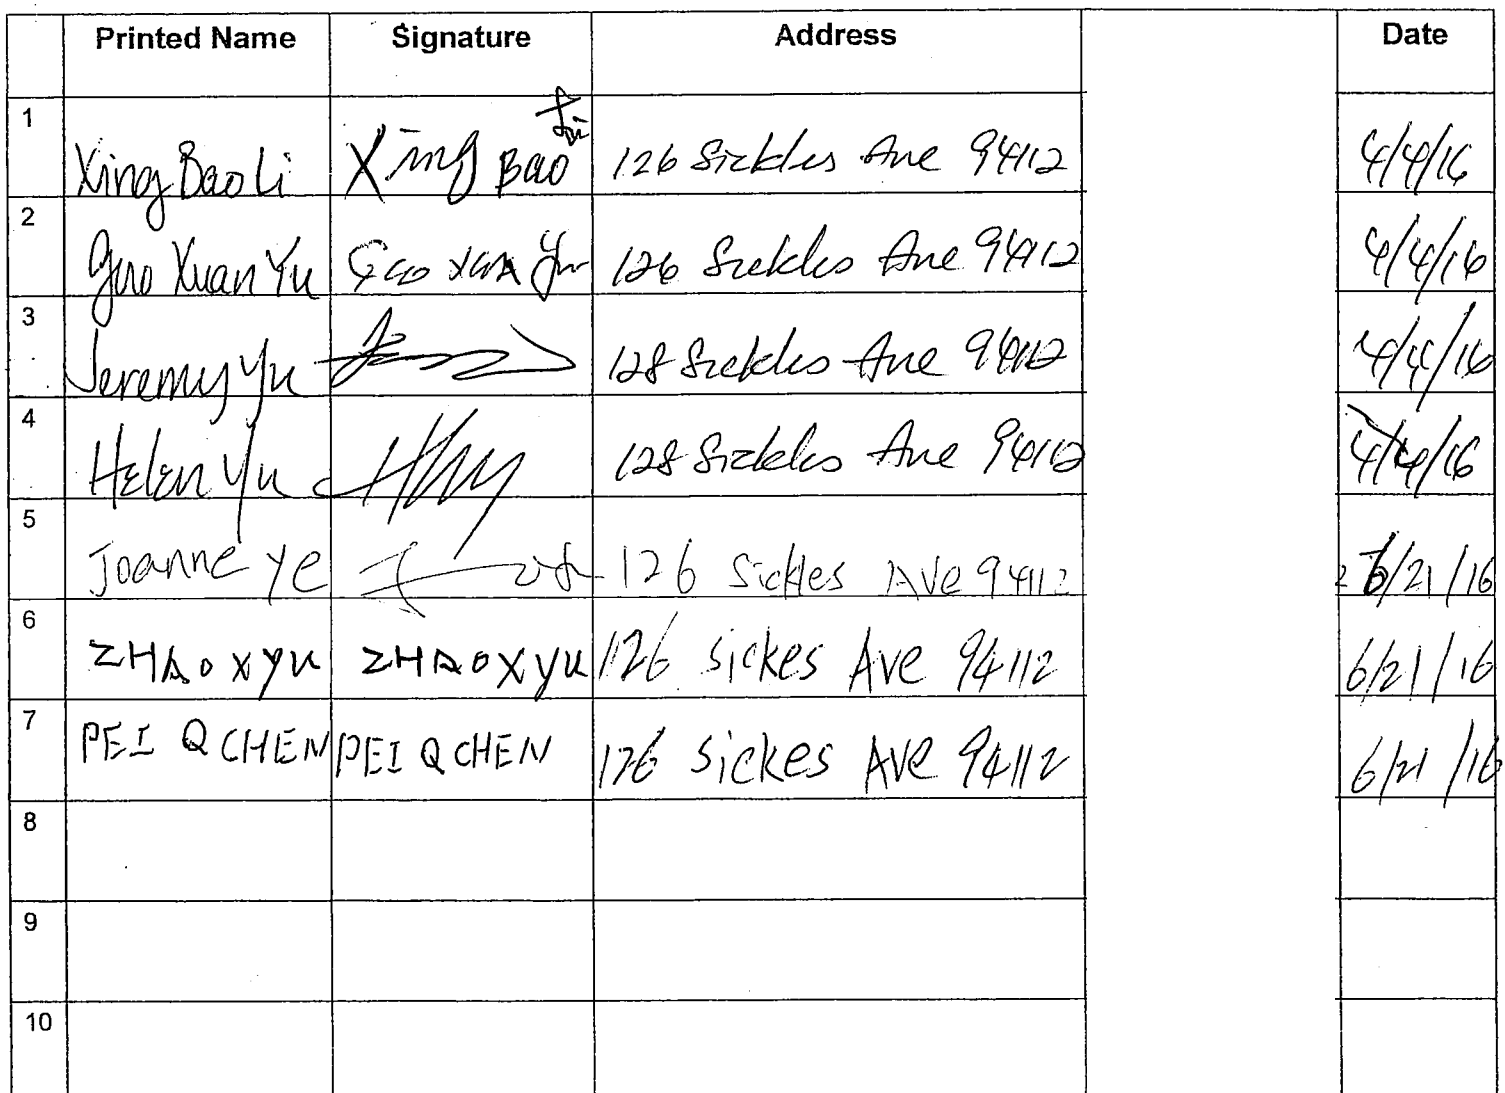 Printed Name Signature Address Date
1 Xing Bao Li Xing Bao Li 126 Sickles Ave 94112 4/4/16
2 Guo Xuan Yu Guo Xuan Yu 126 Sickles Ave 94112 4/4/16
3 Jeremy Yu 128 Sickles Ave 94112 4/4/16
4 Helen Yu 128 Sickles Ave 94112 4/4/16
5 Joanne Ye 126 Sickles Ave 94112 6/21/16
6 ZHAO X YU ZHAO X YU 126 Sickes Ave 94112 6/21/16
7 PEI Q CHEN PEI Q CHEN 126 Sickes Ave 94112 6/21/16
8
9
10